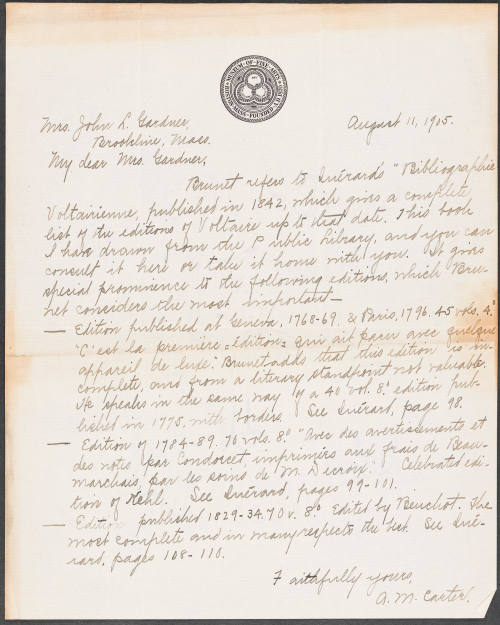 MUSEUM OF FINE ARTS
Mrs. John L. Gardner, August 11, 1905.
Brookline, Mass.
My dear Mrs. Gardner,
Brunet refers to Quérard's "Bibliographie
Voltairienne, published in 1842, which gives a complete
list of the editions of Voltaire up to that date. This book
I have drawn from the Public Library, and you can
consult it here or take it home with you. It gives
special prominence to the following editions, which Bru-
net considers the most important—
— Edition published at Geneva, 1768-69. & Paris, 1796. 45 vols. 4.º
"C'est la première edition qui ait paru avec quelque
appareil de luxe." Brunet adds that this edition is in-
complete, and from a literary standpoint not valuable.
He speaks in the same way of a 40 vol. 8.º edition pub-
lished in 1775, with borders. See Quérard, page 98.
— Edition of 1784-89. 70 vols. 8.º "Avec des avertissements et
des notes par Condorcet, imprimées aux frais de Beau-
marchais, par les soins de M. Decroix." Celebrated edi-
tion of Kehl. See Quérard, pages 99-101.
— Edition published 1829-34. 70 v. 8.º Edited by Beuchot. The
most complete and in many respects the best. See Qué-
rard, pages 108-110.
Faithfully yours,
A. M. Carter.